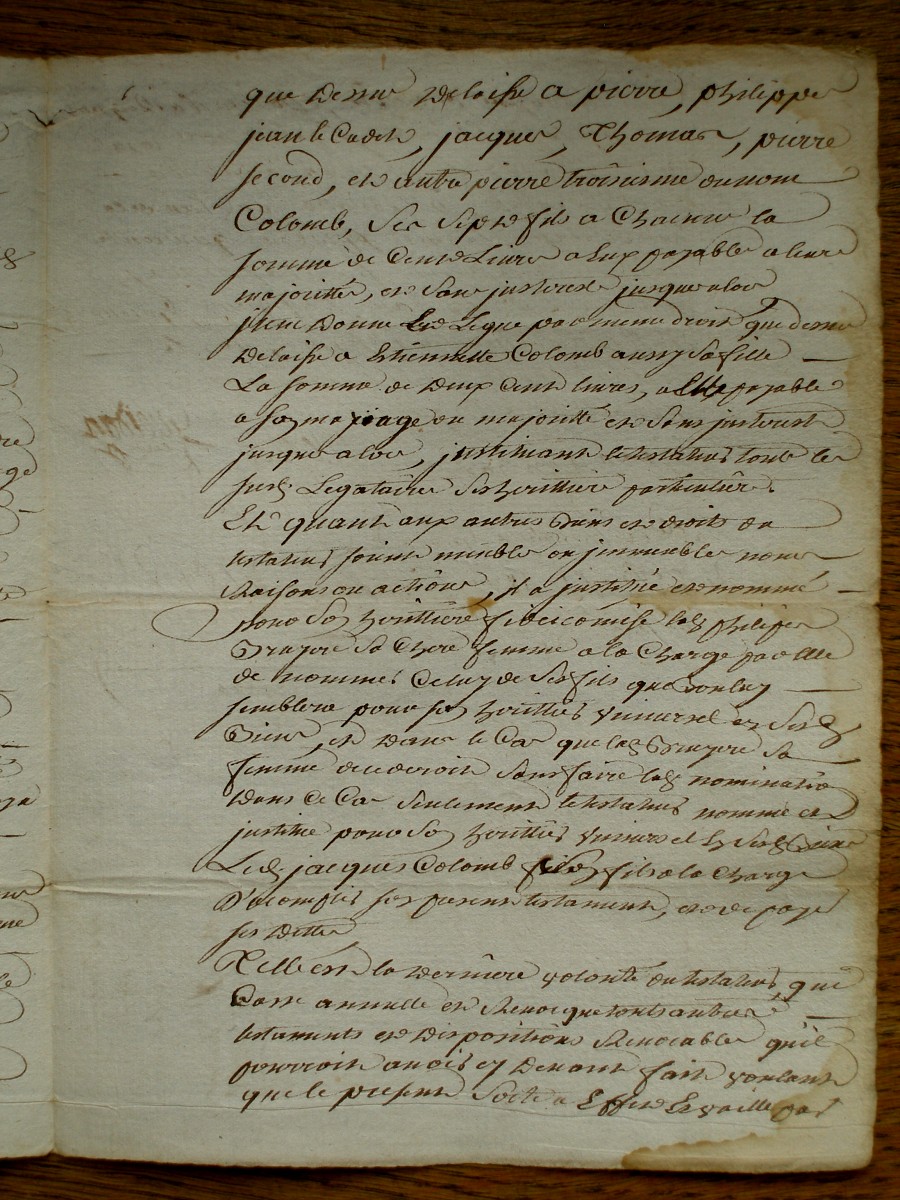 que dessus delaisse a pierre, philippe
jean le Cadet, jacques, Thomas, pierre
second, et autre pierre troisieme du nom
Colomb, ses sept fils a Chacun la
somme de Cent Livres a Eux payable a leur
majoritté, et sans jnterest jusque alors
jtem donne Et Legue par meme droit que dessus
delaisse a Estiennette Colomb aussy sa fille
La somme de deux Cent livres, a Elle payable
a son mariage ou majoritté et sans jnterest
jusque alors, jnstituant le testateur tout les
susd Legataires ses heritiers particuliers
Et quant aux autres Biens et droits du
testateur soient meubles ou jmmeubles noms
Raisons ou actions, jl a jnstitué et nommé
pour son heritiere fideicomise lad philipe
Bruyere sa Chere femme a la Charge par elle
de nommer Celuy de ses fils que bon luy
semblera pour son heritier universel en sesd
Biens, et dans le Cas que lad Bruyere sa
femme decederoit sans faire lad nomination
dans Ce Cas seulement le testateur nomme et
jnstitue pour son heritier universel en sesd Biens
Led jacques Colomb son fils a la Charge
D'acomplir son present testament, et de payer
ses dettes
Telle est la derniere volonté du testateur, qui
Casse annulle et Revoque touts autres
testaments et dispositions Revocables qu'il
pourroit avoir cy devant fait voulant
que le present sorte a Effet Et vaille par